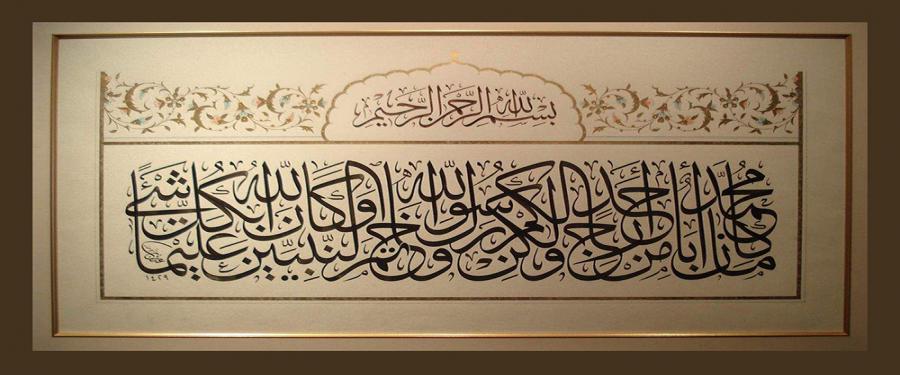 بسم الله الرحمن الرحيم
ما كان محمد أبا أحد من رجالكم ولكن رسول الله وخاتم النبيين وكان الله بكل شئ عليما
١٤٢٩